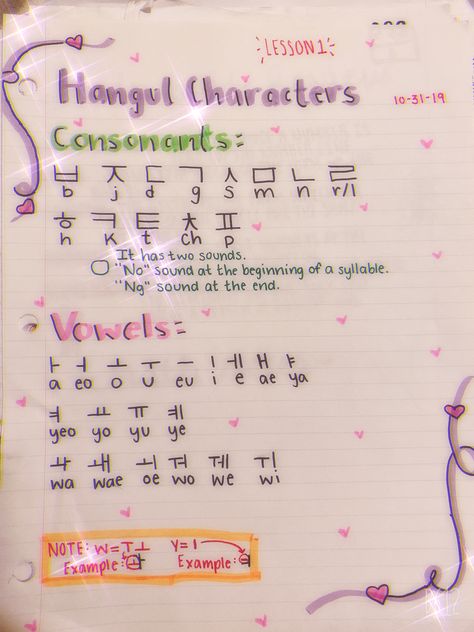 LESSON 1
Hangul Characters
10-31-19
Consonants:
ㅂ ㅈ ㄷ ㄱ ㅅ ㅁ ㄴ ㄹ
b j d g s m n r/l
ㅎ ㅋ ㅌ ㅊ ㅍ
h k t ch p
It has two sounds.
ㅇ "No" sound at the beginning of a syllable.
"Ng" sound at the end.
Vowels:
ㅏ ㅓ ㅗ ㅜ ㅡ ㅣ ㅔ ㅐ ㅑ
a eo o u eu i e ae ya
ㅕ ㅛ ㅠ ㅖ
yeo yo yu ye
ㅘ ㅙ ㅚ ㅝ ㅞ ㅟ
wa wae oe wo we wi
NOTE: W=ㅜㅗ Y=ㅣ
Example: Example: